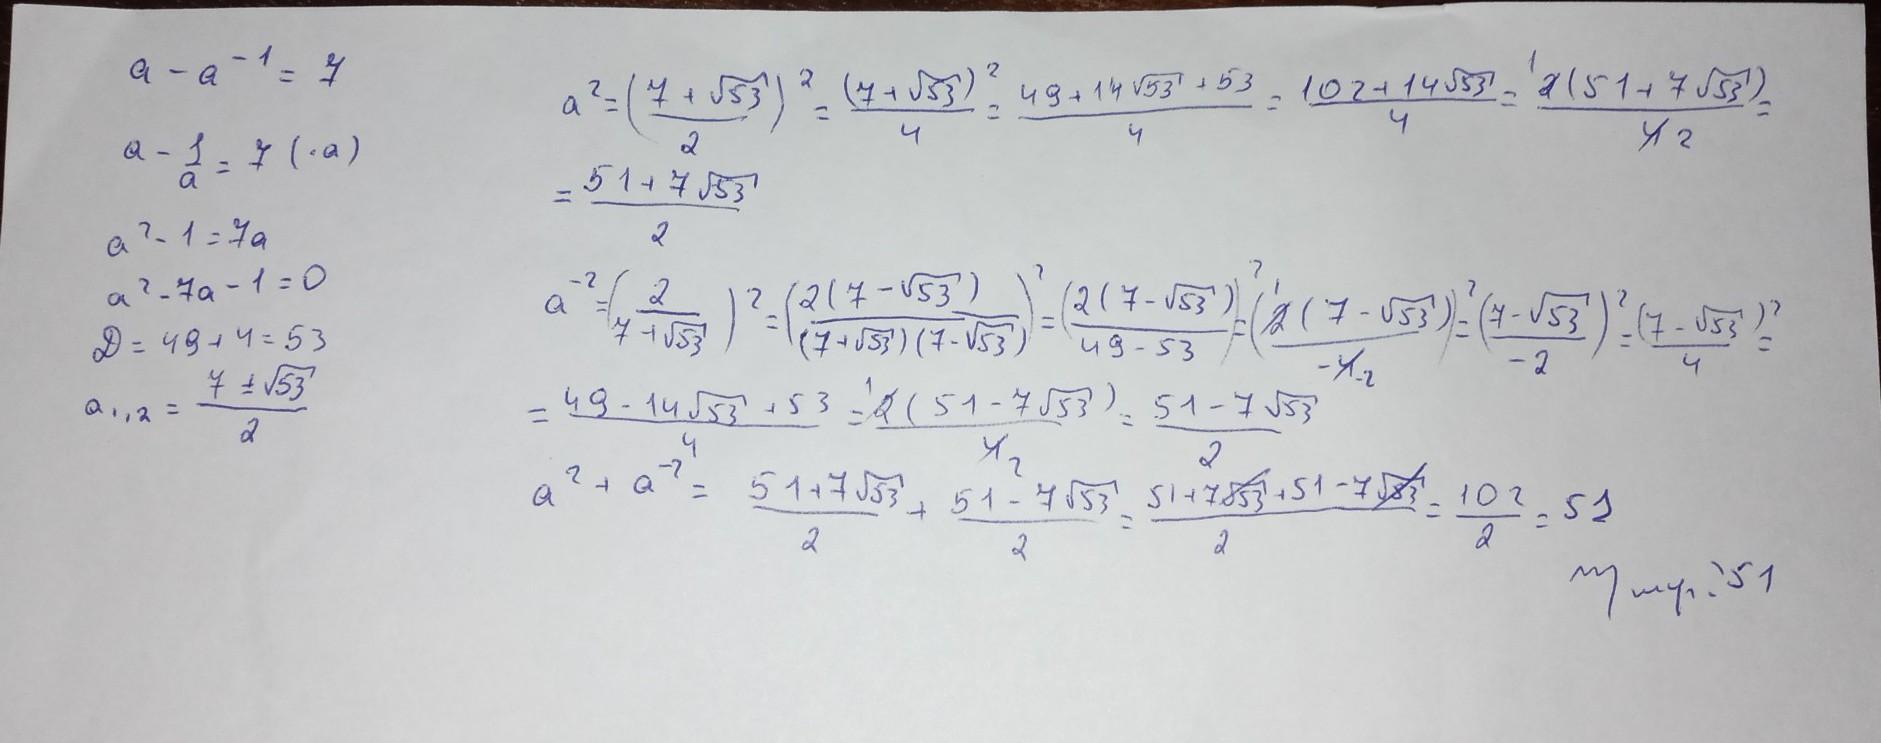 a - a⁻¹ = 7
a - 1/a = 7 (·a)
a² - 1 = 7a
a² - 7a - 1 = 0
D = 49 + 4 = 53
a₁,₂ = (7 ± √53)/2
a² = ((7 + √53)/2)² = (7 + √53)²/4 = (49 + 14√53 + 53)/4 = (102 + 14√53)/4 = 2(51 + 7√53)/4 =
= (51 + 7√53)/2
a⁻² = (2/(7 + √53))² = (2(7 - √53)/((7 + √53)(7 - √53)))² = (2(7 - √53)/(49 - 53))² = (2(7 - √53)/-4)² = ((7 - √53)/-2)² = (7 - √53)²/4 =
= (49 - 14√53 + 53)/4 = 2(51 - 7√53)/4 = (51 - 7√53)/2
a² + a⁻² = (51 + 7√53)/2 + (51 - 7√53)/2 = (51 + 7√53 + 51 - 7√53)/2 = 102/2 = 51
: 51